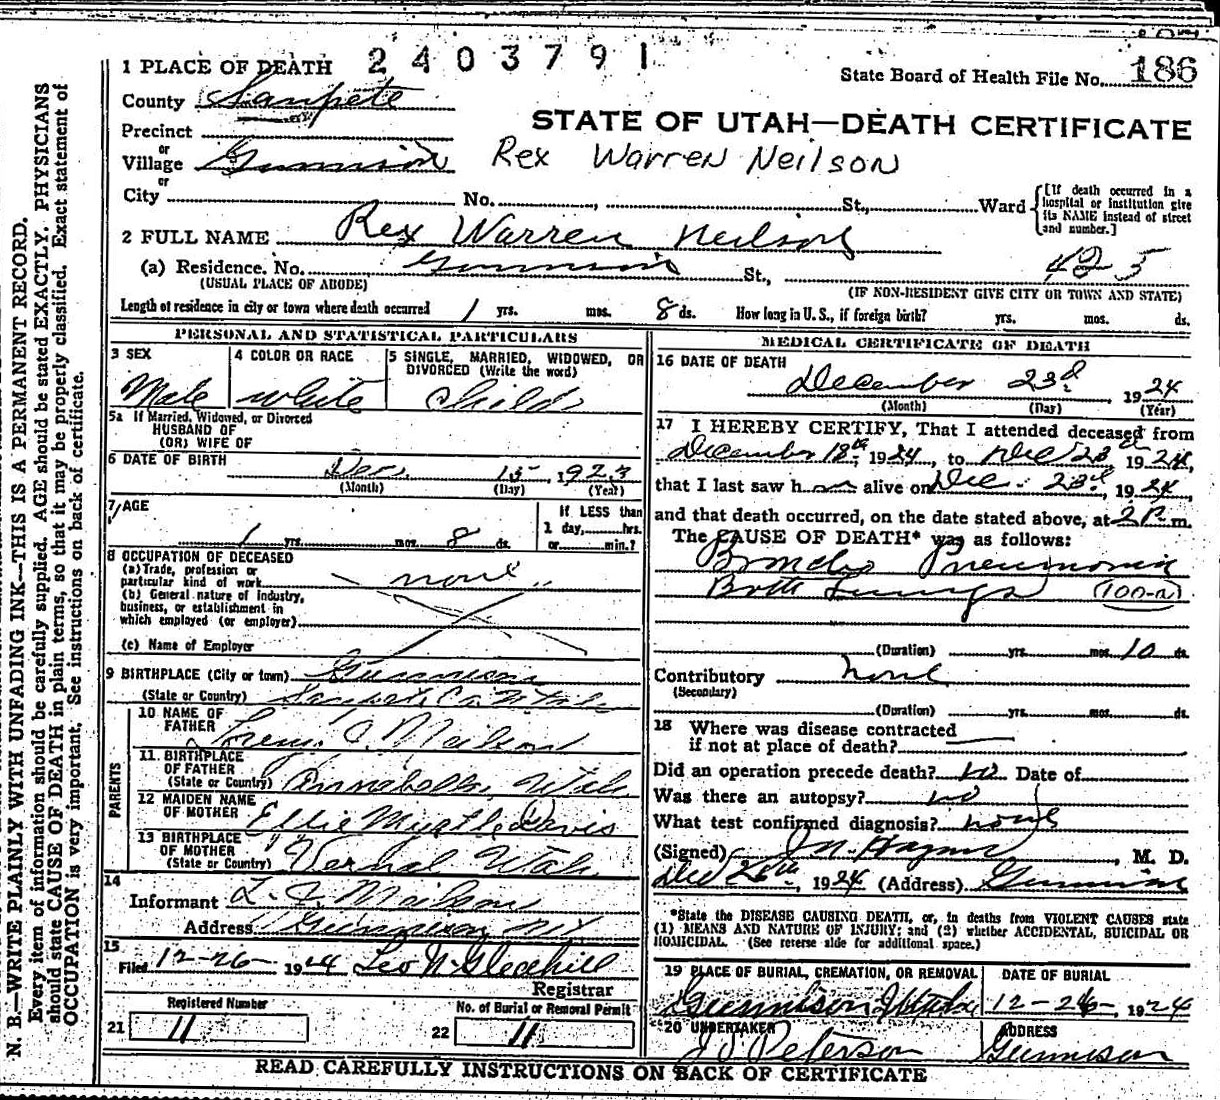 186
2403791
1 PLACE OF DEATH
State Board of Health File No. 186
County Sanpete
STATE OF UTAH—DEATH CERTIFICATE
Precinct
or
Village Gunnison
Rex Warren Neilson
or
City No. , St., Ward
[If death occurred in a hospital or institution give its NAME instead of street and number.]
2 FULL NAME Rex Warren Neilson
(a) Residence. No. Gunnison St.,
425
(USUAL PLACE OF ABODE)
(IF NON-RESIDENT GIVE CITY OR TOWN AND STATE)
Length of residence in city or town where death occurred 1 yrs. mos. 8 ds. How long in U. S., if foreign birth? yrs. mos. ds.
PERSONAL AND STATISTICAL PARTICULARS
3 SEX
Male
4 COLOR OR RACE
white
5 SINGLE, MARRIED, WIDOWED, OR
DIVORCED (Write the word)
Child
5a If Married, Widowed, or Divorced
HUSBAND OF
(OR) WIFE OF
6 DATE OF BIRTH Dec. 15, 1923
(Month) (Day) (Year)
7 AGE
1 yrs. mos. 8 ds.
If LESS than
1 day, hrs.
or min.?
8 OCCUPATION OF DECEASED
(a) Trade, profession or
particular kind of work none
(b) General nature of Industry,
business, or establishment in
which employed (or employer)
(c) Name of Employer
9 BIRTHPLACE (City or town) Gunnison
(State or Country) Sanpete Co. Utah
PARENTS
10 NAME OF
FATHER Neilson
11. BIRTHPLACE
OF FATHER
(State or Country) Annabella Utah
12 MAIDEN NAME
OF MOTHER Effie Myrtle Davis
13 BIRTHPLACE
OF MOTHER
(State or Country) Vernal Utah
14
Informant L. I. Neilson
Address Gunnison Ut
15
Filed 12-26- 1924 Leo N. Gledhill
Registrar
Registered Number
21 11
No. of Burial or Removal Permit
22 11
MEDICAL CERTIFICATE OF DEATH
16 DATE OF DEATH
December 23d. 1924
(Month) (Day) (Year)
17 I HEREBY CERTIFY, That I attended deceased from
December 18th, 1924, to Dec 23d 1924,
that I last saw h alive on Dec. 23d, 1924,
and that death occurred, on the date stated above, at 2 P. m.
The CAUSE OF DEATH* was as follows:
Broncho Pneumonia
Both Lungs (100-a)
(Duration) yrs. mos. 10 ds.
Contributory none
(Secondary)
(Duration) yrs. mos. ds.
18 Where was disease contracted
if not at place of death?
Did an operation precede death? no Date of
Was there an autopsy? no
What test confirmed diagnosis? none
(Signed) , M. D.
Dec 26th, 1924 (Address) Gunnison
*State the DISEASE CAUSING DEATH, or, in deaths from VIOLENT CAUSES state
(1) MEANS AND NATURE OF INJURY; and (2) whether ACCIDENTAL, SUICIDAL OR
HOMICIDAL. (See reverse side for additional space.)
19 PLACE OF BURIAL, CREMATION, OR REMOVAL
Gunnison Utah
DATE OF BURIAL
12-26-, 1924
20 UNDERTAKER
J S Peterson
ADDRESS
Gunnison
READ CAREFULLY INSTRUCTIONS ON BACK OF CERTIFICATE
N. B.—WRITE PLAINLY WITH UNFADING INK—THIS IS A PERMANENT RECORD.
Every item of information should be carefully supplied. AGE should be stated EXACTLY. PHYSICIANS
should state CAUSE OF DEATH in plain terms, so that it may be properly classified. Exact statement of
OCCUPATION is very important. See instructions on back of certificate.